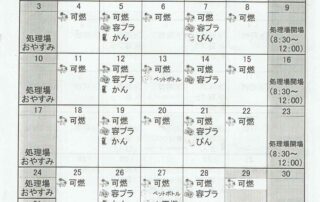 3 4 5 6 7 8 9
処理場
おやすみ
可燃
可燃
容プラ
かん
可燃
可燃
容プラ
びん
可燃
処理場開場
(8:30~
12:00)
10 11 12 13 14 15 16
処理場
おやすみ
可燃
可燃
容プラ
かん
可燃
ペットボトル
可燃
容プラ
可燃
処理場開場
(8:30~
12:00)
17 18 19 20 21 22 23
処理場
おやすみ
可燃
可燃
容プラ
かん
可燃
可燃
容プラ
びん
可燃
処理場開場
(8:30~
12:00)
24 25 26 27 28 29 30
処理場
おやすみ
可燃
可燃
容プラ
可燃
ペットボトル
可燃
容プラ
可燃